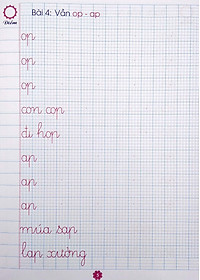 Điểm
Bài 4: Vần op - ap
op
op
op
con cọp
đi họp
ap
ap
ap
múa sạp
lạp xưởng